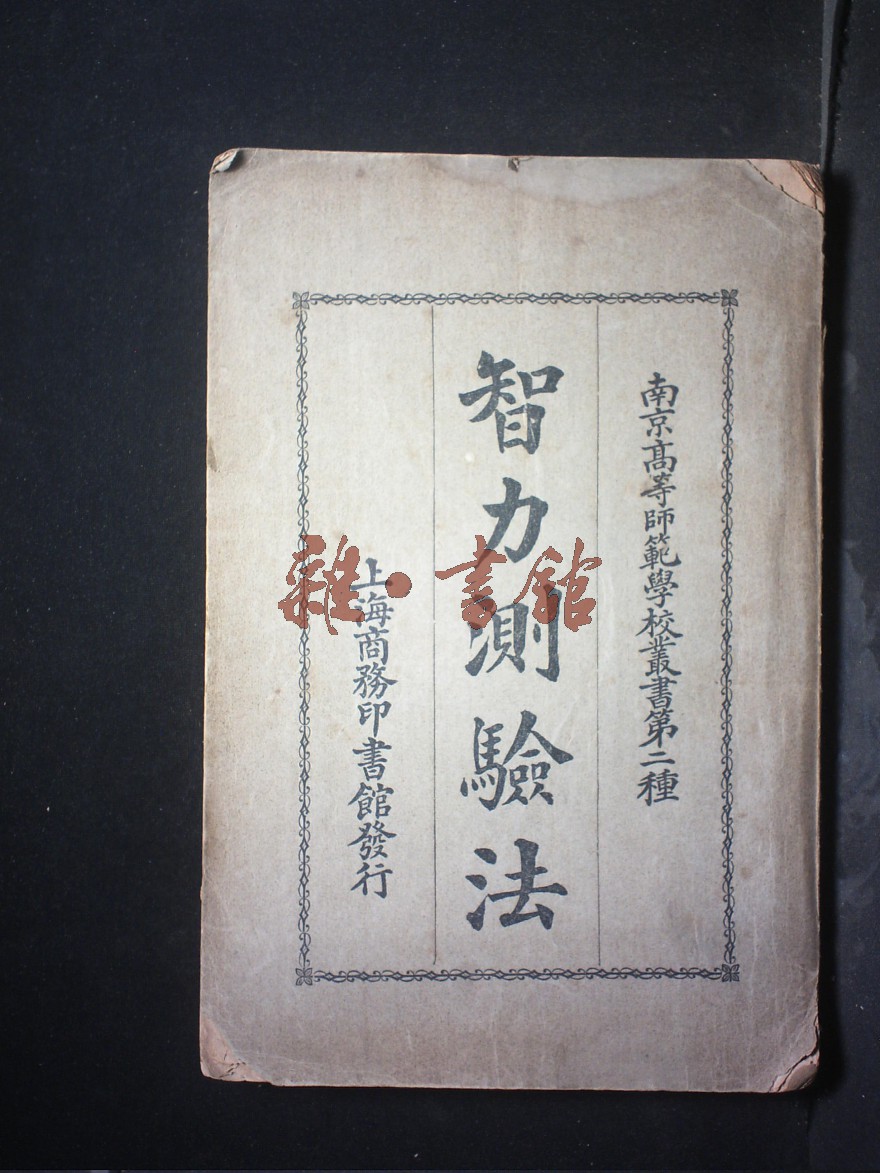 南京高等師範學校叢書第二種
智力測驗法
上海商務印書館發行
雜·書館